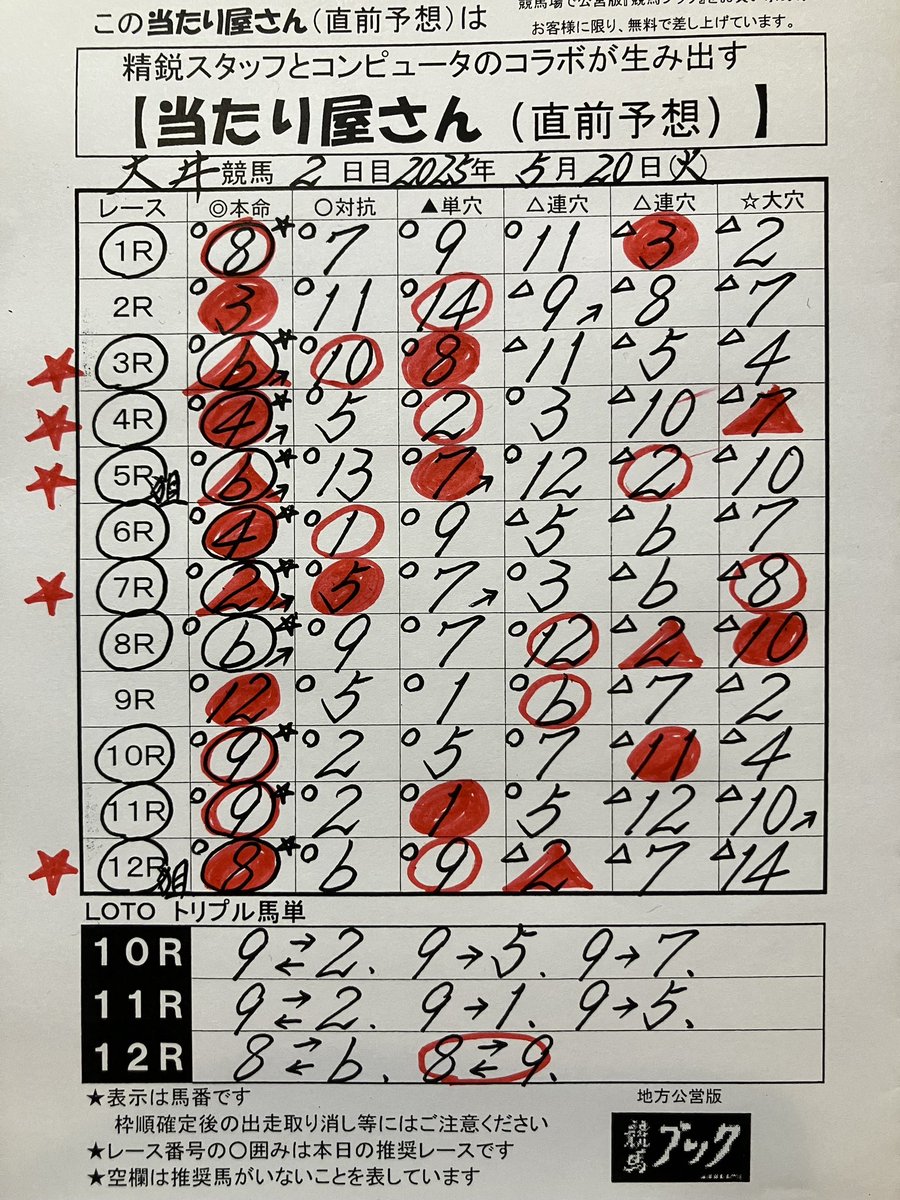 この当たり屋さん（直前予想）は
お客様に限り、無料で差し上げています。
精鋭スタッフとコンピュータのコラボが生み出す
【当たり屋さん（直前予想）】
大井競馬 2日目 2025年 5月20日(火)
レース ◎本命 ○対抗 ▲単穴 △連穴 △連穴 ☆大穴
1R ○8☆ ○7 ○9 ○11 △3 △2
2R ○3 ○11 ○14 △9↗ △8 △7
★ 3R ○6☆↗ ○10 ○8 △11 △5 △4
★ 4R ○4☆↗ ○5 ○2 ○3 △10 △7
★ 5R狙 ○6☆↗ ○13 ○7↗ ○12 △2 △10
6R ○4☆ ○1 ○9 △5 △6 △7
★ 7R ○2☆↗ ○5 ○7↗ ○3 △6 △8
8R ○6☆↗ ○9 ○7 ○12 △2 △10
9R ○12 ○5 ○1 ○6 △7 △2
10R ○9☆ ○2 ○5 ○7 △11 △4
11R ○9☆ ○2 ○1 ○5 △12 △10↗
★ 12R狙 ○8☆ ○6 ○9 △2 △7 △14
LOTO トリプル馬単
10R 9⇄2、 9→5、 9→7、
11R 9⇄2、 9→1、 9→5、
12R 8⇄6、 8⇄9、
★表示は馬番です
枠順確定後の出走取り消し等にはご注意ください
★レース番号の○囲みは本日の推奨レースです
★空欄は推奨馬がいないことを表しています
地方公営版
競馬ブック